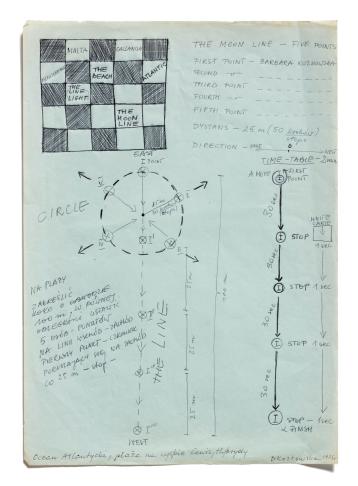 MALTA
CALLANISH
ATLANTIC
THE BEACH
THE LINE-LIGHT
THE MOON LINE
THE MOON LINE - FIVE POINTS
FIRST POINT - BARBARA KOZŁOWSKA
SECOND -"-
THIRD POINT
FOURTH -"-
FIFTH POINT
DYSTANS - 25 m (50
DIRECTION -
WEST
TIME-TABLE -
FIRST POINT
30 sec
STOP
1 SEC
30 sec
STOP 1 SEC
30 sec
STOP 1 SEC
30 sec
STOP - 1 SEC
EAST
I POINT
CIRCLE
THE LINE
25 m
25 m
25 m
WEST
NA PLAŻY
ZAKREŚLIĆ
KOŁO O OBWODZIE
100 m, W RÓWNEJ
ODLEGŁOŚCI USTAWIĆ
5 OSÓB - PUNKTÓW
NA LINII WSCHÓD-ZACHÓD
PIERWSZY PUNKT - CZŁOWIEK
PORUSZAJĄCY SIĘ NA ZACHÓD
CO 25 m - stop -
Ocean Atlantycki, plaża na wyspie Lewis,
B Kozłowska